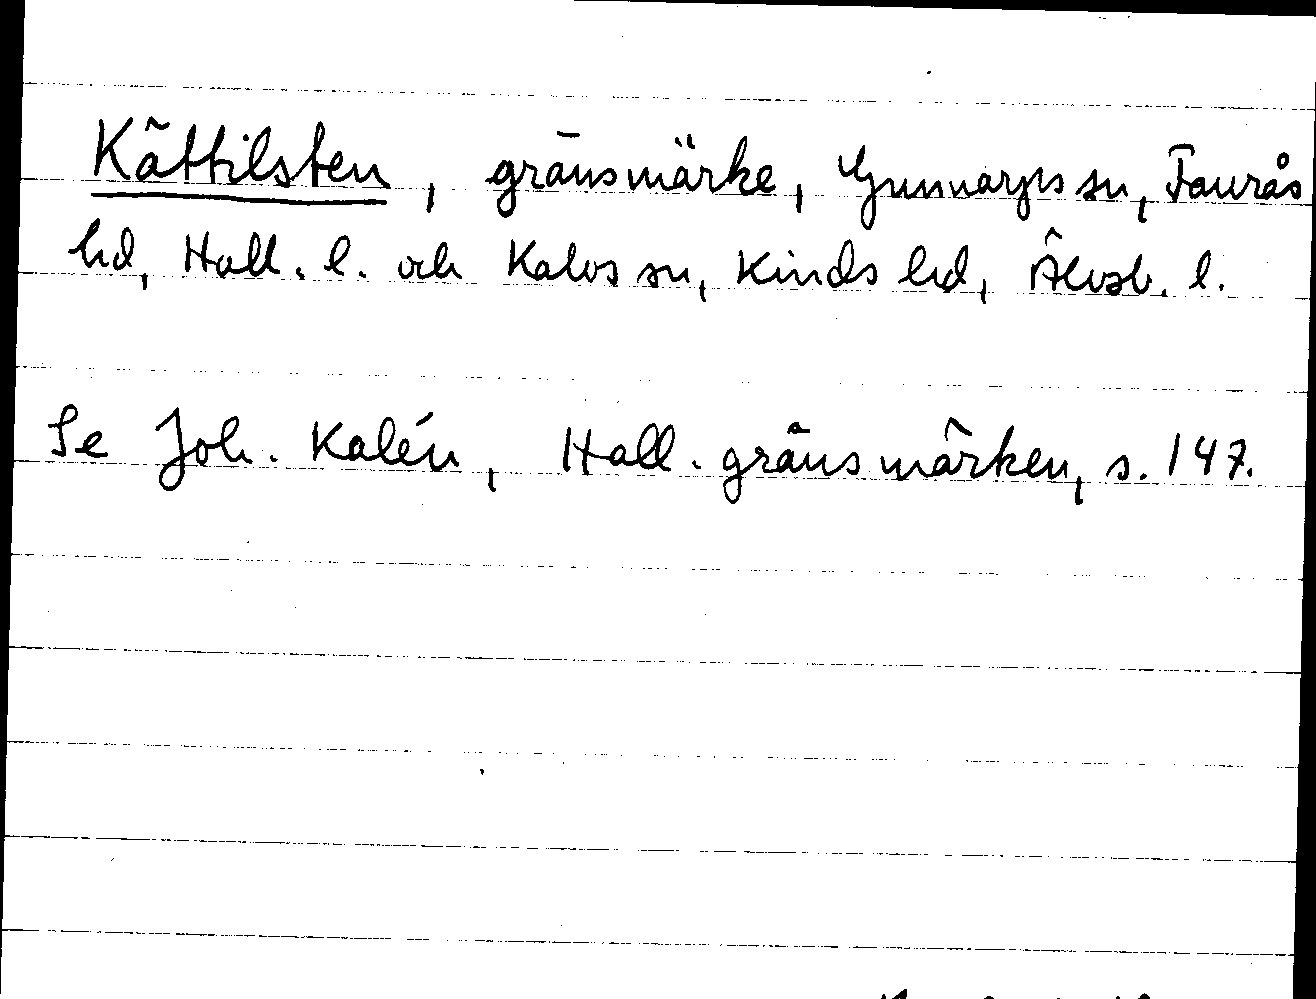 Kättilsten, gränsmärke, Gunnarps sn, Faurås
hd, Hall. l. och Kalvs sn, Kinds hd, Älvsb. l.
Se Joh. Kalén, Hall. gränsmärken, s. 147.